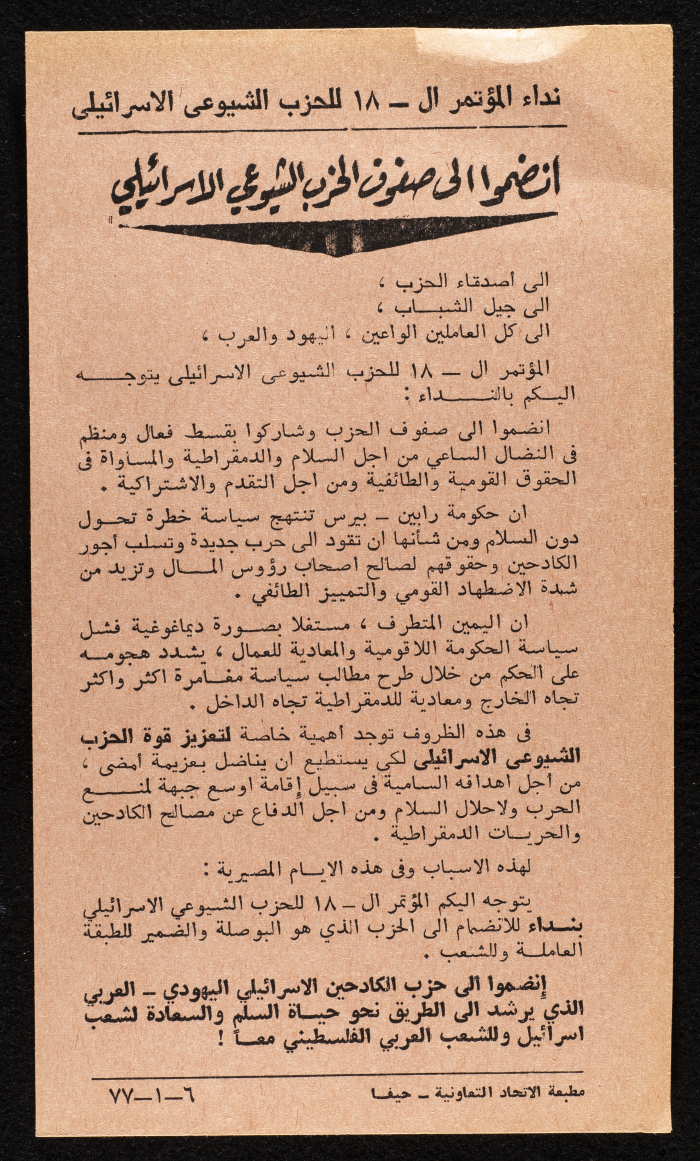 نداء المؤتمر ال ــ ١٨ للحزب الشيوعى الاسرائيلى
انضموا الى صفوف الحزب الشيوعي الاسرائيلي
الى أصدقاء الحزب ،
الى جيل الشبــاب ،
الى كل العاملين الواعين ، اليهود والعرب ،
المؤتمر ال ــ ١٨ للحزب الشيوعى الاسرائيلى يتوجــــه
اليــكم بالنــــداء :
انضموا الى صفوف الحزب وشاركوا بقسط فعال ومنظم
فى النضال الساعي من اجل السلام والدمقراطية والمساواة فى
الحقوق القومية والطائفية ومن اجل التقدم والاشتراكية .
ان حكومة رابين ــ بيرس تنتهج سياسة خطرة تحــول
دون السلام ومن شأنها ان تقود الى حرب جديدة وتسلب أجور
الكادحين وحقوقهم لصالح اصحاب رؤوس المــال وتزيد من
شدة الاضطهاد القومي والتمييز الطائفي .
ان اليمين المتطرف ، مستغلا بصــورة ديماغوغية فشل
سياسة الحكومة اللاقومية والمعادية للعمال ، يشدد هجومــه
على الحكم من خلال طرح مطالب سياسة مغــامرة اكثر واكثر
تجاه الخارج ومعادية للدمقراطية تجاه الداخل .
فى هذه الظروف توجد أهمية خاصة لتعزيز قوة الحزب
الشيوعى الاسرائيلى لكي يستطيع ان يناضل بعزيمة أمضى ،
من أجل اهدافه السامية فى سبيل إقامة اوسع جبهة لمنــــع
الحرب ولاحلال السلام ومن اجل الدفاع عن مصالح الكادحين
والحريــات الدمقراطية .
لهذه الاسباب وفى هذه الايــام المصيرية :
يتوجه اليكم المؤتمر ال ــ ١٨ للحزب الشيوعي الاسرائيلي
بنــداء للانضمام الى الحزب الذي هو البوصلة والضمير للطبقة
العاملــة وللشعب .
إنضموا الى حزب الكادحين الاسرائيلي اليهودي ــ العربي
الذي يرشد الى الطريق نحو حيــاة السلم والسعادة لشعب
اسرائيل وللشعب العربي الفلسطيني معــاً !
مطبعة الاتحاد التعاونية ــ حيفــا
٦ــ١ــ٧٧